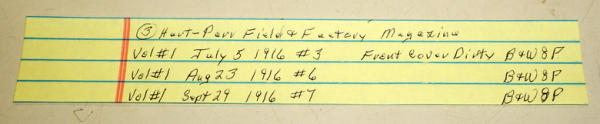 ③ Hart-Parr Field & Factory Magazine
Vol#1 July 5 1916 #3 Front Cover Dirty B&W 8P
Vol#1 Aug 23 1916 #6 B&W 8P
Vol#1 Sept 29 1916 #7 B&W 8P